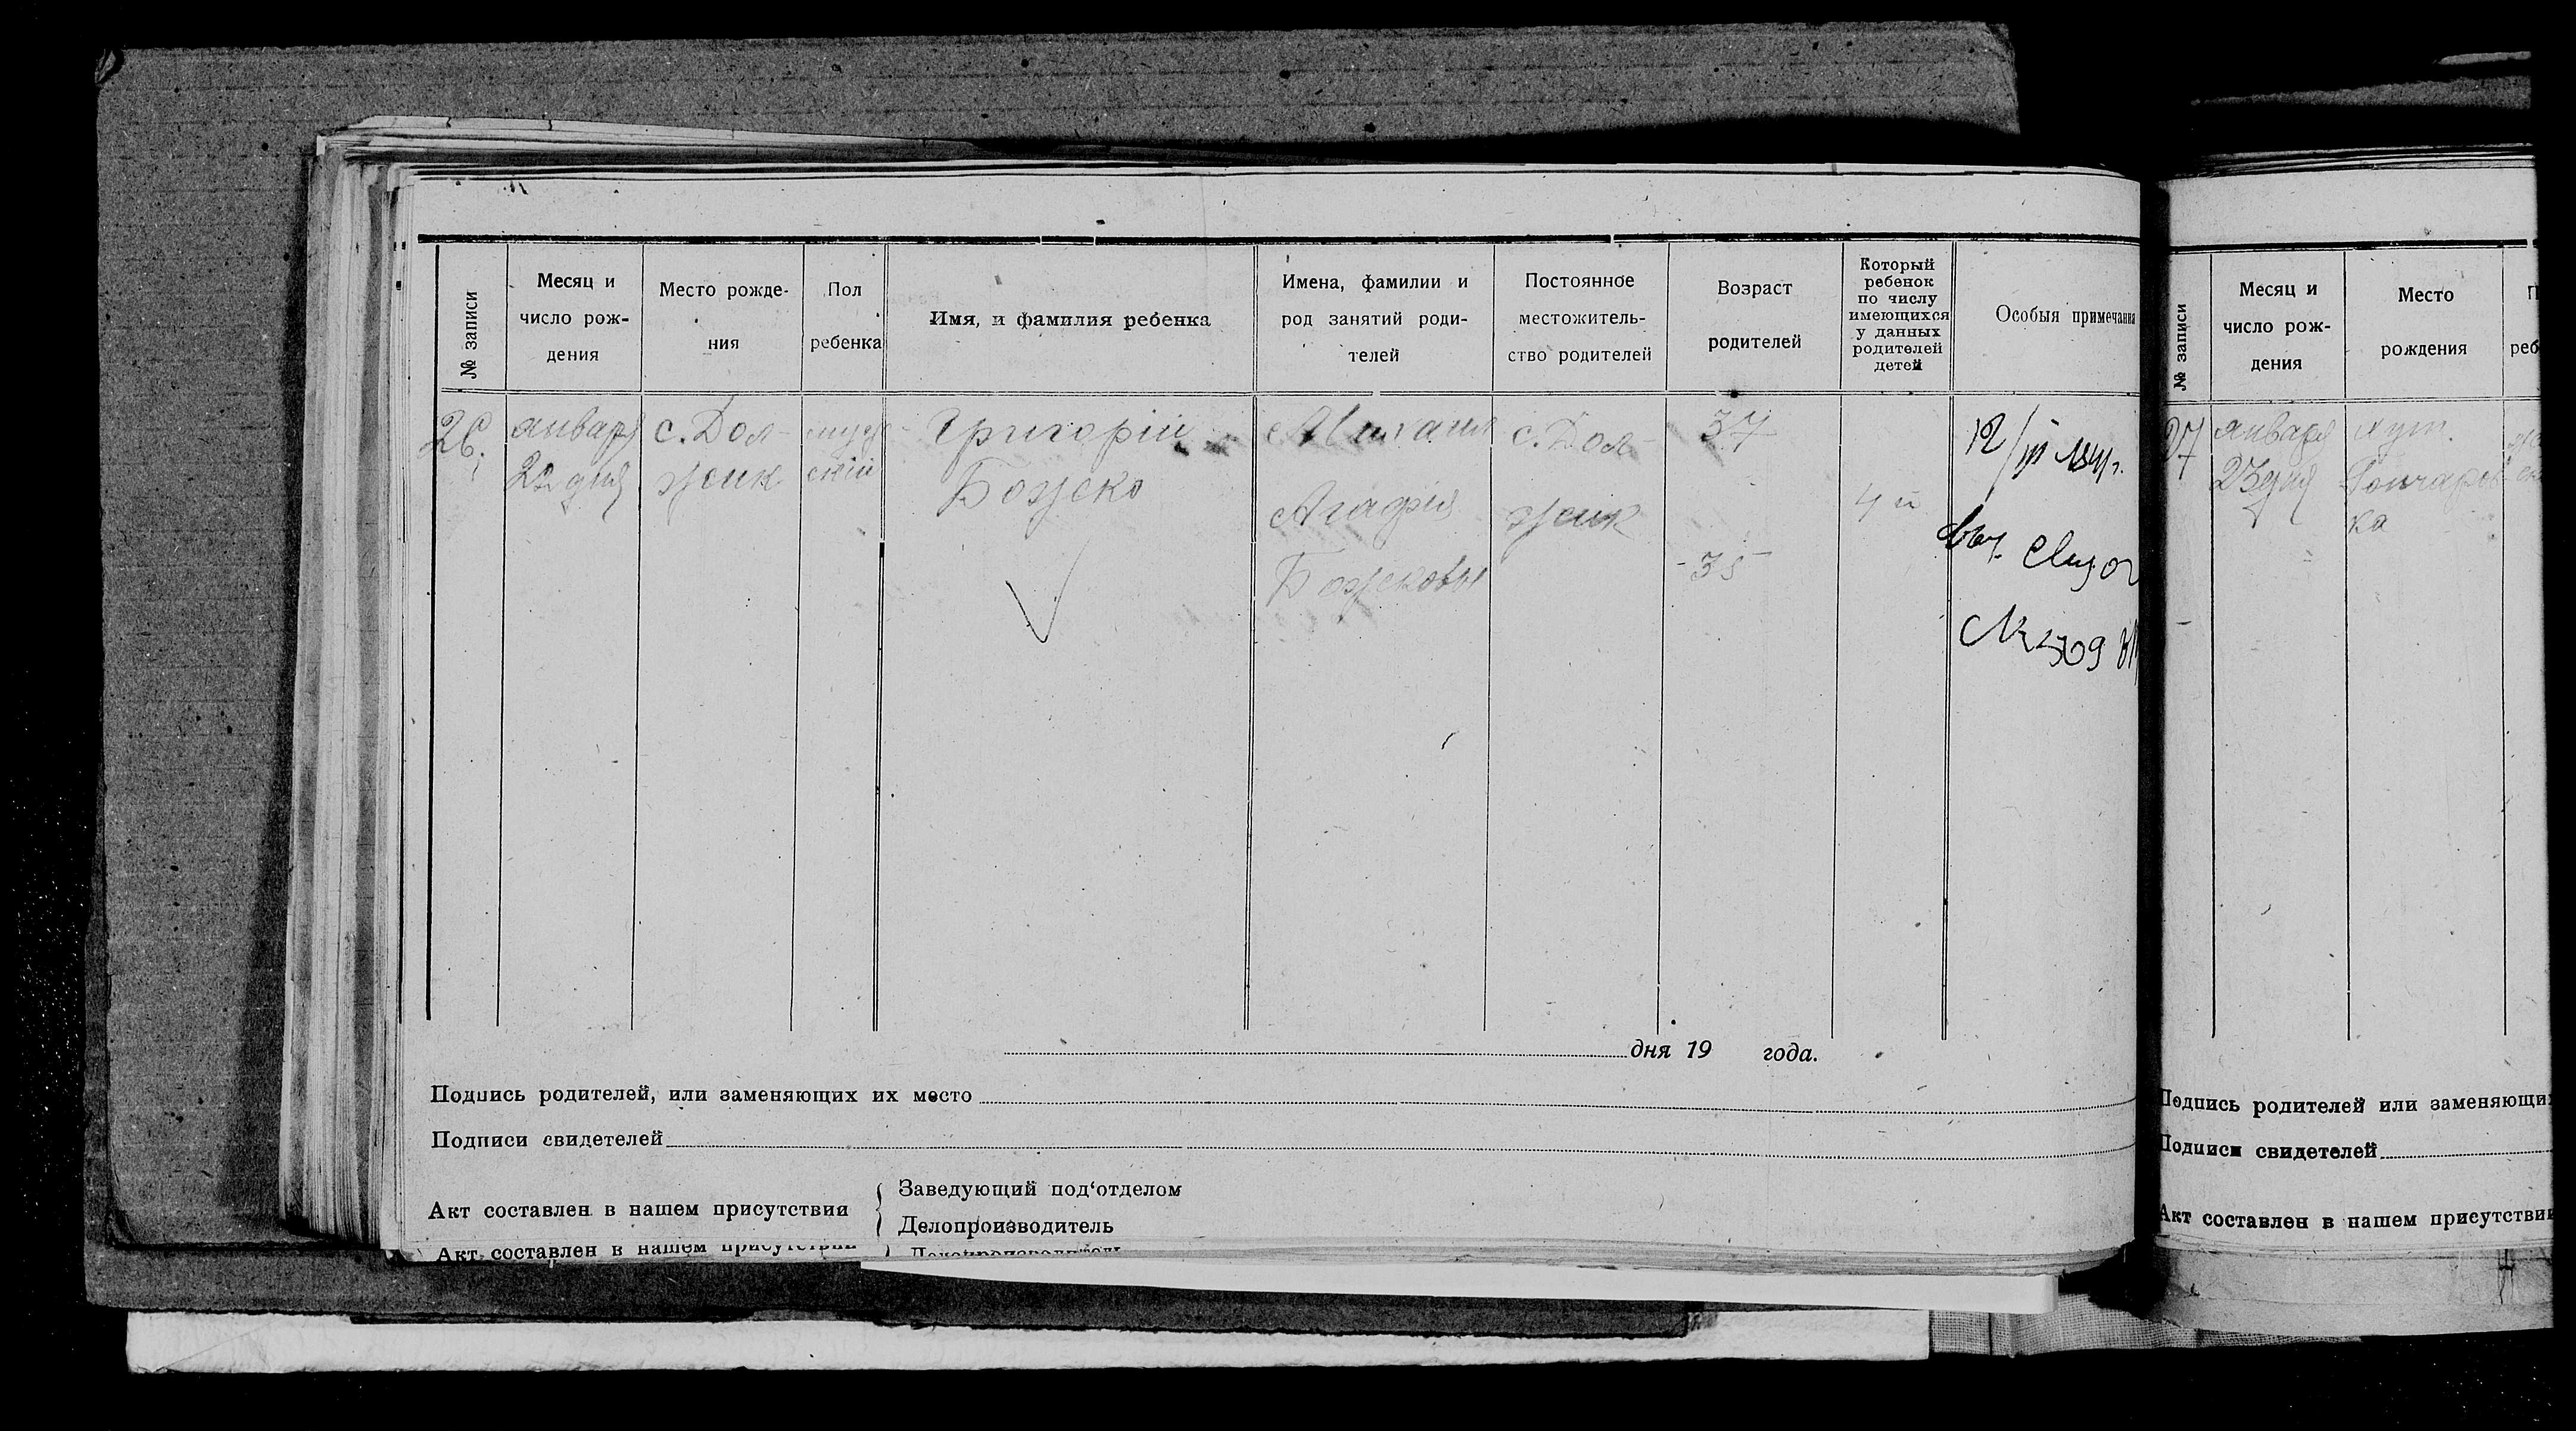 № записи
Месяц и
число рож-
дения
Место рожде-
ния
Пол
ребенка
Имя, и фамилия ребенка
Имена, фамилии и
род занятий роди-
телей
Постоянное
местожитель-
ство родителей
Возраст
родителей
Который
ребенок
по числу
имеющихся
у данных
родителей
детей
Особыя примечания
26.
января
22 дня
с. Дол-
жик
муж-
ский
Григорій
Божско
Агафия
Божсковы
с. Дол-
жик
37
-35-
4 й
12/III
№ 509
дня 19 года.
Подпись родителей, или заменяющих их место
Подписи свидетелей
Акт составлен в нашем присутствии
Заведующий под‘отделом
Делопроизводитель
Акт составлен в нашем присутствии
Делопроизводитель
№ записи
Месяц и
число рож-
дения
Место
рождения
П
реб
27
января
23 дня
хут.
Гончаров-
ка
Подпись родителей или заменяющи
Подписи свидетелей
Акт составлен в нашем присутствии